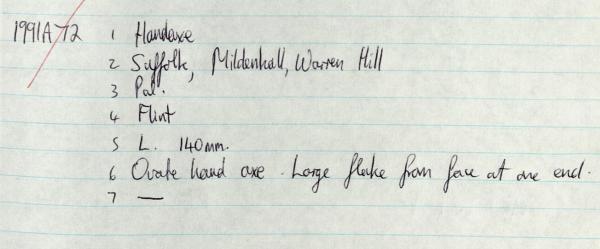 1991A72 1 Handaxe
2 Suffolk, Mildenhall, Warren Hill
3 Pal.
4 Flint
5 L. 140mm.
6 Ovate hand axe. Large flake from face at one end.
7 —